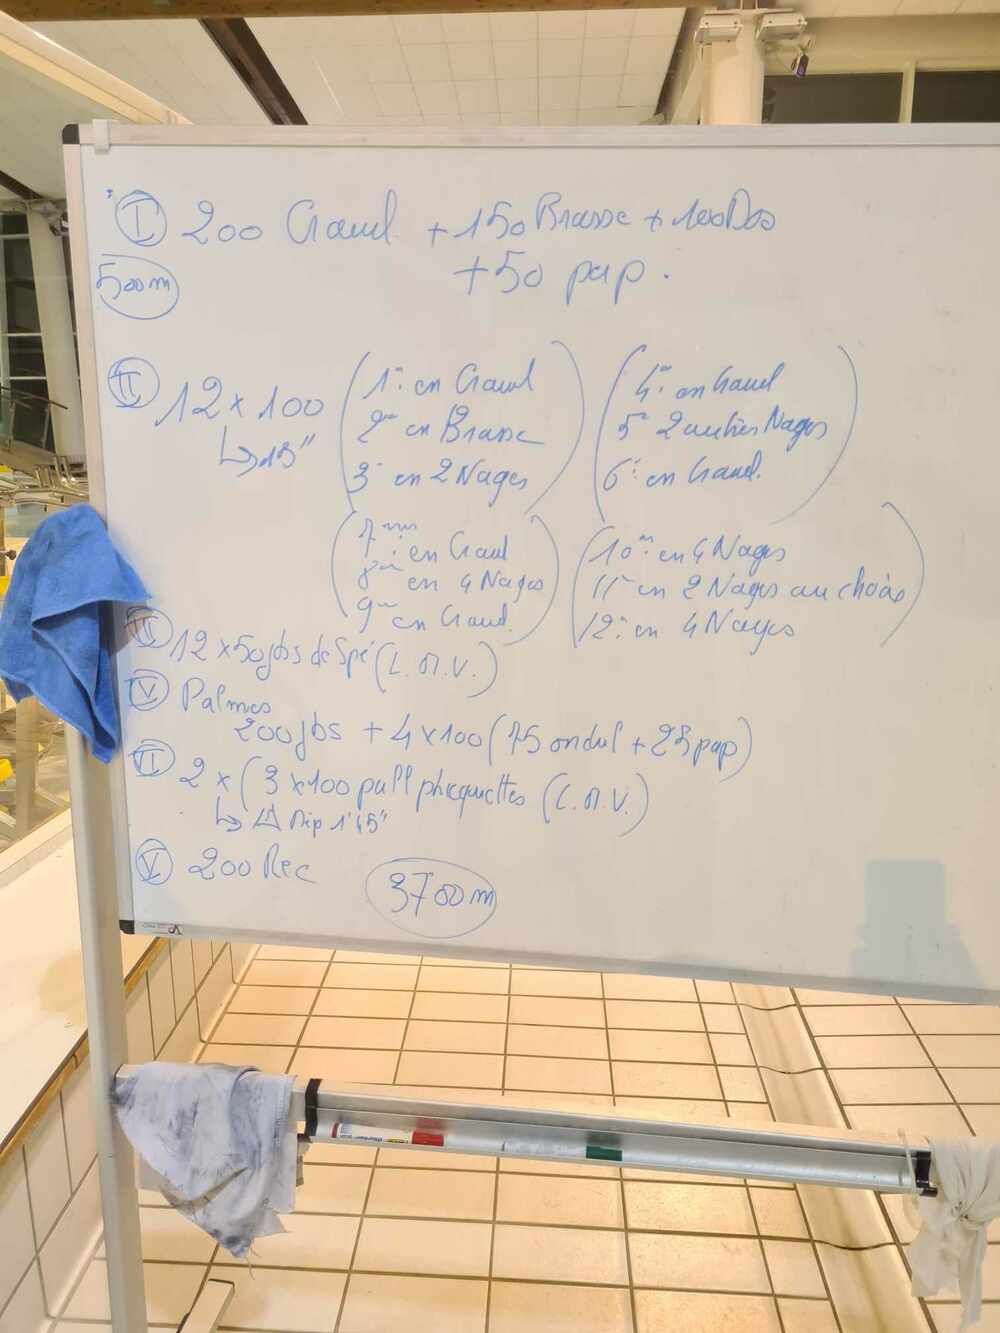 I 200 Crawl + 150 Brasse + 100 Dos
+ 50 pap.
500m
II 12 x 100 (1er en Crawl
2ème en Brasse
3e en 2 Nages)
↳ 15"
(4e en Crawl
5e 2 autres Nages
6e en Crawl.)
(7ème en Crawl
8ème en 4 Nages
9ème en Crawl.)
(10e en 4 Nages
11e en 2 Nages au choix
12e en 4 Nages)
12 x 50 jbs de Spé (L.M.V.)
Palmes
200 jbs + 4 x 100 (75 ondul + 25 pap)
2 x (3 x 100 pull plaquettes (L.M.V.)
↳ 1'45"
V 200 Rec
3700m